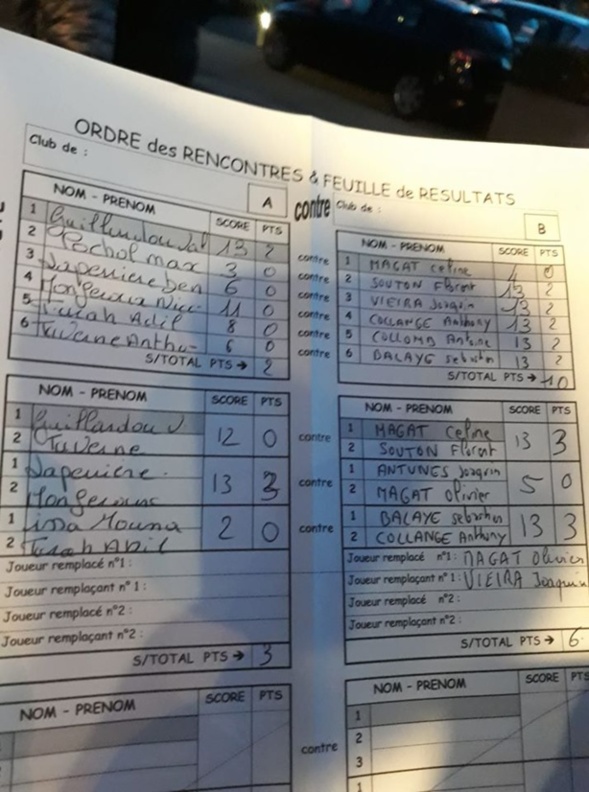 ORDRE des RENCONTRES & FEUILLE de RESULTATS
Club de :
A
contre
Club de :
B
NOM - PRENOM SCORE PTS
1 13 2
2 Pochol max 3 0
3 Lapeniere ben 6 0
4 11 0
5 Turah Adil 8 0
6 Taverne Antho 6 0
S/TOTAL PTS → 2
contre
contre
contre
contre
contre
contre
NOM - PRENOM SCORE PTS
1 MAGAT Celine 4 0
2 SOUTON Florent 13 2
3 VIEIRA Joaquin 13 2
4 COLLANGE Anthony 13 2
5 COLLOMB Antoine 13 2
6 BALAYE Sebastien 13 2
S/TOTAL PTS → 10
NOM - PRENOM SCORE PTS
1 Guillandou V. 12 0
2 Taverne
1 Lapeniere 13 3
2
1 Mouna 2 0
2 Turah Adil
Joueur remplacé n°1 :
Joueur remplaçant n°1 :
Joueur remplacé n°2 :
Joueur remplaçant n°2 :
S/TOTAL PTS → 3
contre
contre
contre
NOM - PRENOM SCORE PTS
1 MAGAT Celine 13 3
2 SOUTON Florent
1 ANTUNES Joaquin 5 0
2 MAGAT Olivier
1 BALAYE Sebastien 13 3
2 COLLANGE Anthony
Joueur remplacé n°1 : MAGAT Olivier
Joueur remplaçant n°1 : VIEIRA Joaquin
Joueur remplacé n°2 :
Joueur remplaçant n°2 :
S/TOTAL PTS → 6
NOM - PRENOM SCORE PTS
contre
NOM - PRENOM SCORE PTS
1
2
3
1